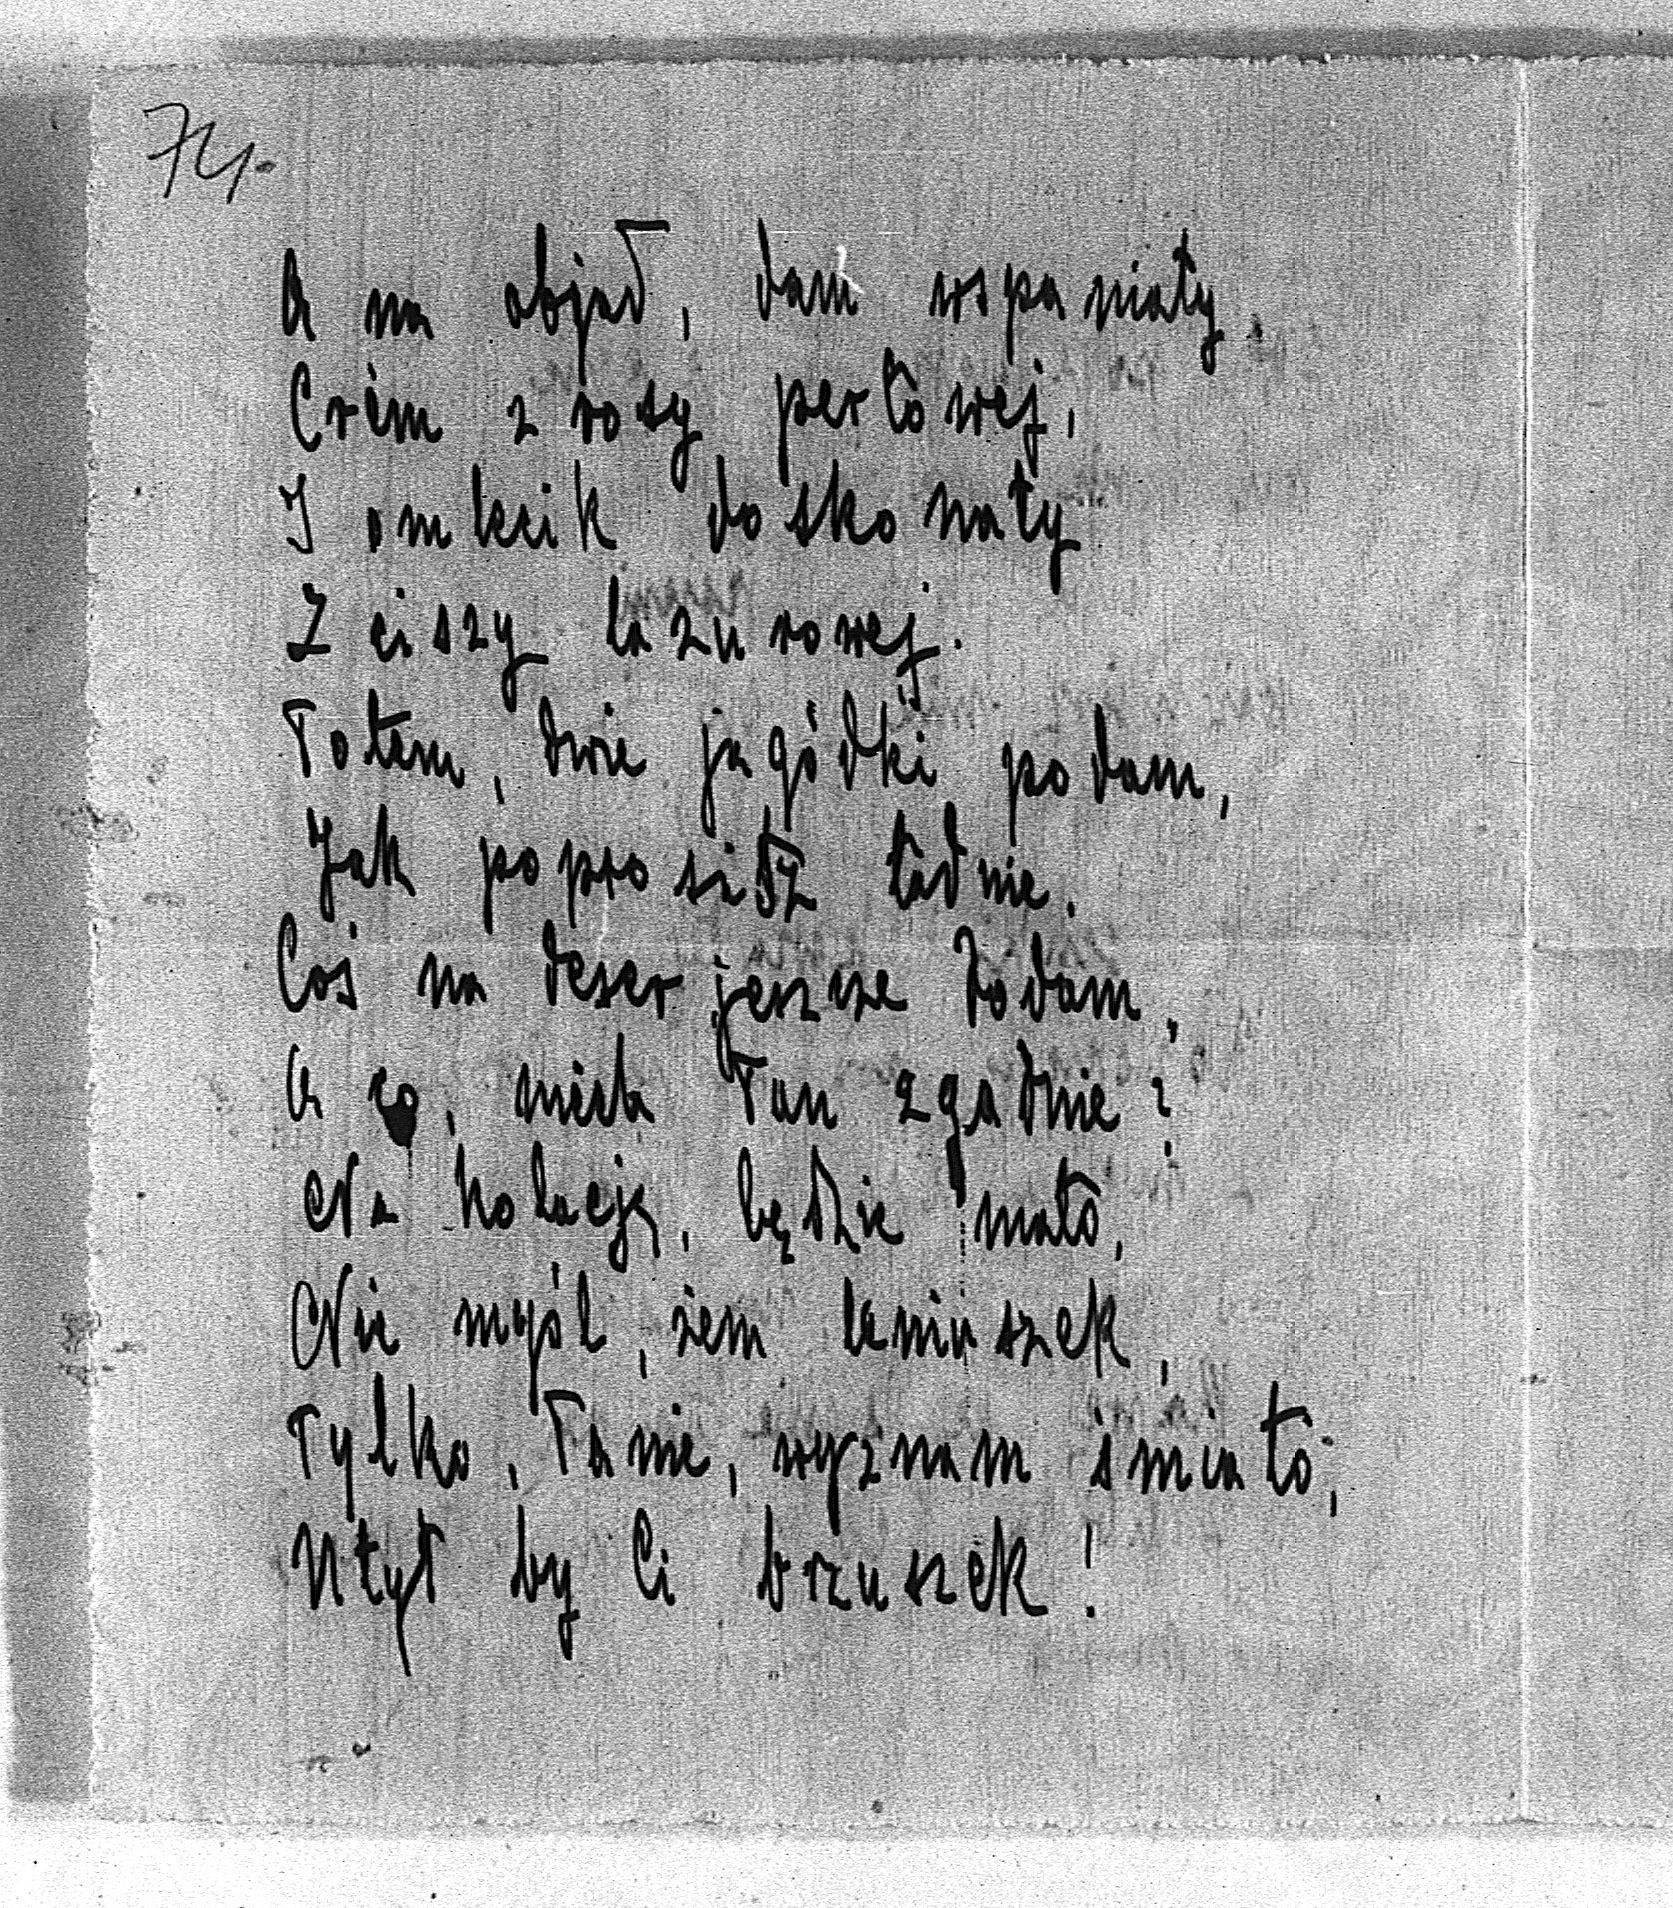 74.
A na objad, dam wspaniały,
Crém z rosy perłowej,
I omlecik doskonały
Z ciszy lazurowej.
Potem, dwie jagódki podam,
Jak poprosisz ładnie.
Coś na deser jeszcze dodam,
A co, niech Pan zgadnie?
Na kolację, będzie mało,
Nie myśl, żem leniuszek,
Tylko, Panie, wyznam śmiało,
Utył by Ci brzuszek!